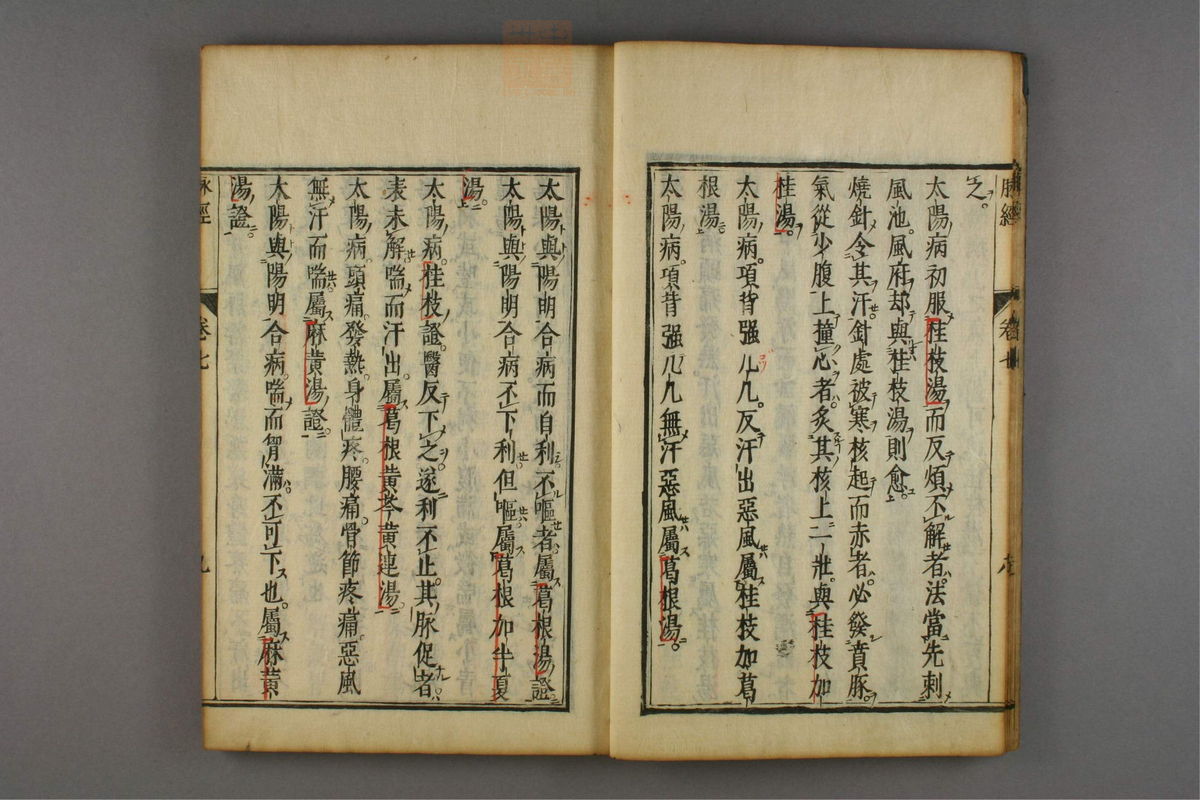 脉經
卷七
之。
太陽病初服桂枝湯而反煩不解者。法當先刺
風池。風府却與桂枝湯則愈。
燒針令其汗。針處被寒核起而赤者。必發賁豚。
氣從少腹上撞心者。灸其核上一壯與桂枝加
桂湯。
太陽病。項背强几几。反汗出惡風屬桂枝加葛
根湯。
太陽病。項背强几几無汗惡風屬葛根湯。
太陽與陽明合病而自利不嘔者屬葛根湯證
太陽與陽明合病不下利但嘔屬葛根加半夏
湯。
太陽病。桂枝證醫反下之遂利不止。其脉促者。
表未解喘而汗出。屬葛根黄芩黄連湯。
太陽病。頭痛。發熱。身體疼。腰痛。骨節疼痛。惡風
無汗而喘屬麻黄湯證。
太陽與陽明合病。喘而胷滿不可下也。屬麻黄
湯證。
脉經
卷七
九